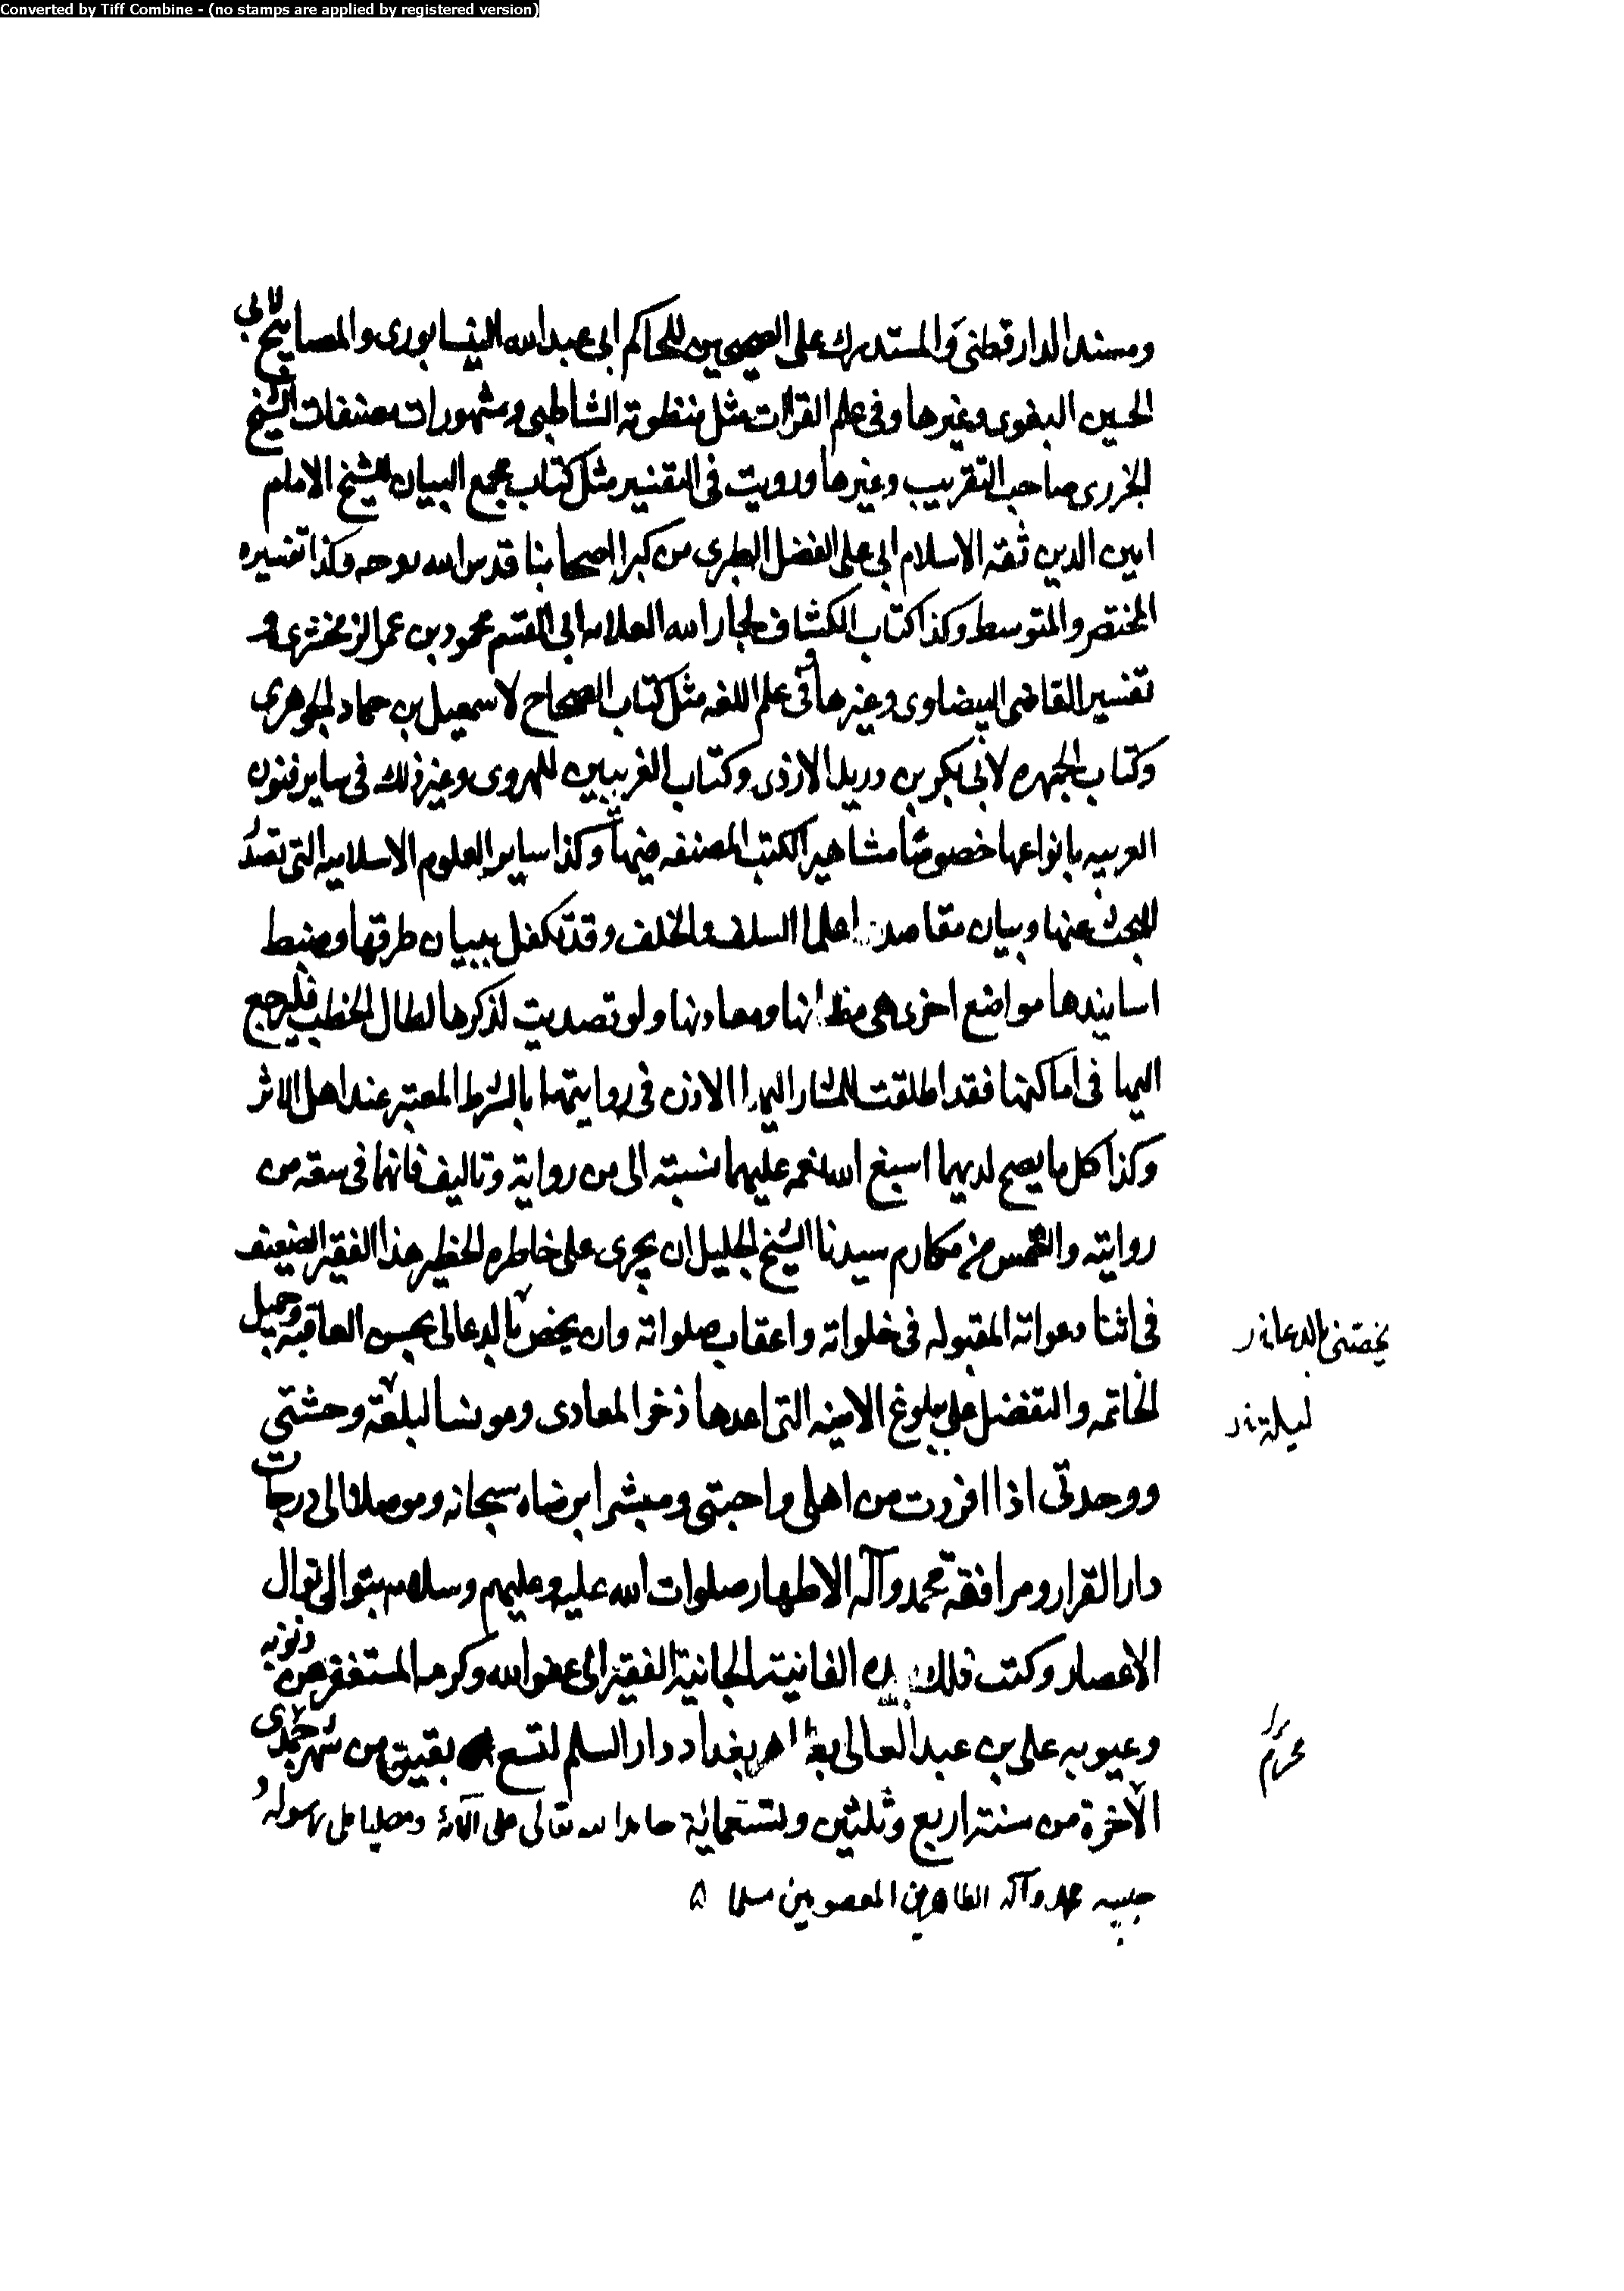 Converted by Tiff Combine - (no stamps are applied by registered version)
ومسند الدارقطنى والمستدرك على الصحيحين للحاكم ابى عبدالله النيسابورى والمصابيح لابى
الحسين البغوى وغيرها وفى علم القراآت مثل منظومة الشاطبى ومشهورات مصنفات الشيخ
الجزرى صاحب التقريب وغيرها ورويت فى التفسير مثل كتاب مجمع البيان للشيخ الامام
امين الدين ثقه الاسلام ابى على الفضل الطبرى من كبرا اصحابنا قدس الله روحه وكذا تفسيره
المختصر والمتوسط وكذا كتاب الكشاف لجار الله العلامه ابى القسم محمود بن عمر الزمخشرى و
تفسير القاضى البيضاوى وغيرها وفى علم اللغه مثل كتاب الصحاح لاسمعيل بن حماد الجوهرى
وكتاب الجمهره لابى بكر بن دريد الازدى وكتاب الغريبين للهروى وغير ذلك فى ساير فنون
العربيه بانواعها خصوصًا مشاهير الكتب المصنفه فيها وكذا ساير العلوم الاسلاميه التى تصدّ
للبحث عنها وبيان مقاصدها علما السلف والخلف وقد تكفل ببيان طرقها وضبط
اسانيدها مواضع اخرى هى مظانها ومعادنها ولو تصديت لذكرها لطال الخطب فليرجع
اليها فى اماكنها فقد اطلقت للمشار اليهما الاذن فى روايتهما بالشرط المعتبر عند اهل الاثر
وكذا كل ما يصح لديهما اسبغ الله نعمه عليهما نسبته الى من رواية وتاليف فانهما فى سعة من
روايته والتمس من مكارم سيدنا الشيخ الجليل ان يجرى على خاطره الخطير هذا الفقير الضعيف
فى اثنا دعواته المقبوله فى خلواته واعقاب صلواته وان يخص بالدعا لى بحسن العاقبه وجميل
يخصنى بالدعا
الخاتمه والتفضل على ببلوغ الامنيه التى اعدها ذخرا لمعادى ومونسا لبلغة وحشتى
ليلة
ووحدتى اذا افردت من اهلى واحبتى ومبشرا برضاه سبحانه وموصلا الى درجات
دار القرار ومرافقة محمد وآله الاطهار صلوات الله عليه وعليهم وسلامه بتوالى توال
الاعصار وكتب ذلك بيده الفانية الجانية الفقير الى عفو الله وكرمه المستغفر من ذنوبه
وعيوبه على بن عبد العالى ببغداد دار السلم لتسع بقين من شهر جمدى
الآخرة من سنة اربع وثلثين وتسعمائة حامدا لله تعالى على آلائه ومصليا على رسوله و
حبيبه محمد وآله الطاهرين المعصومين مسلما